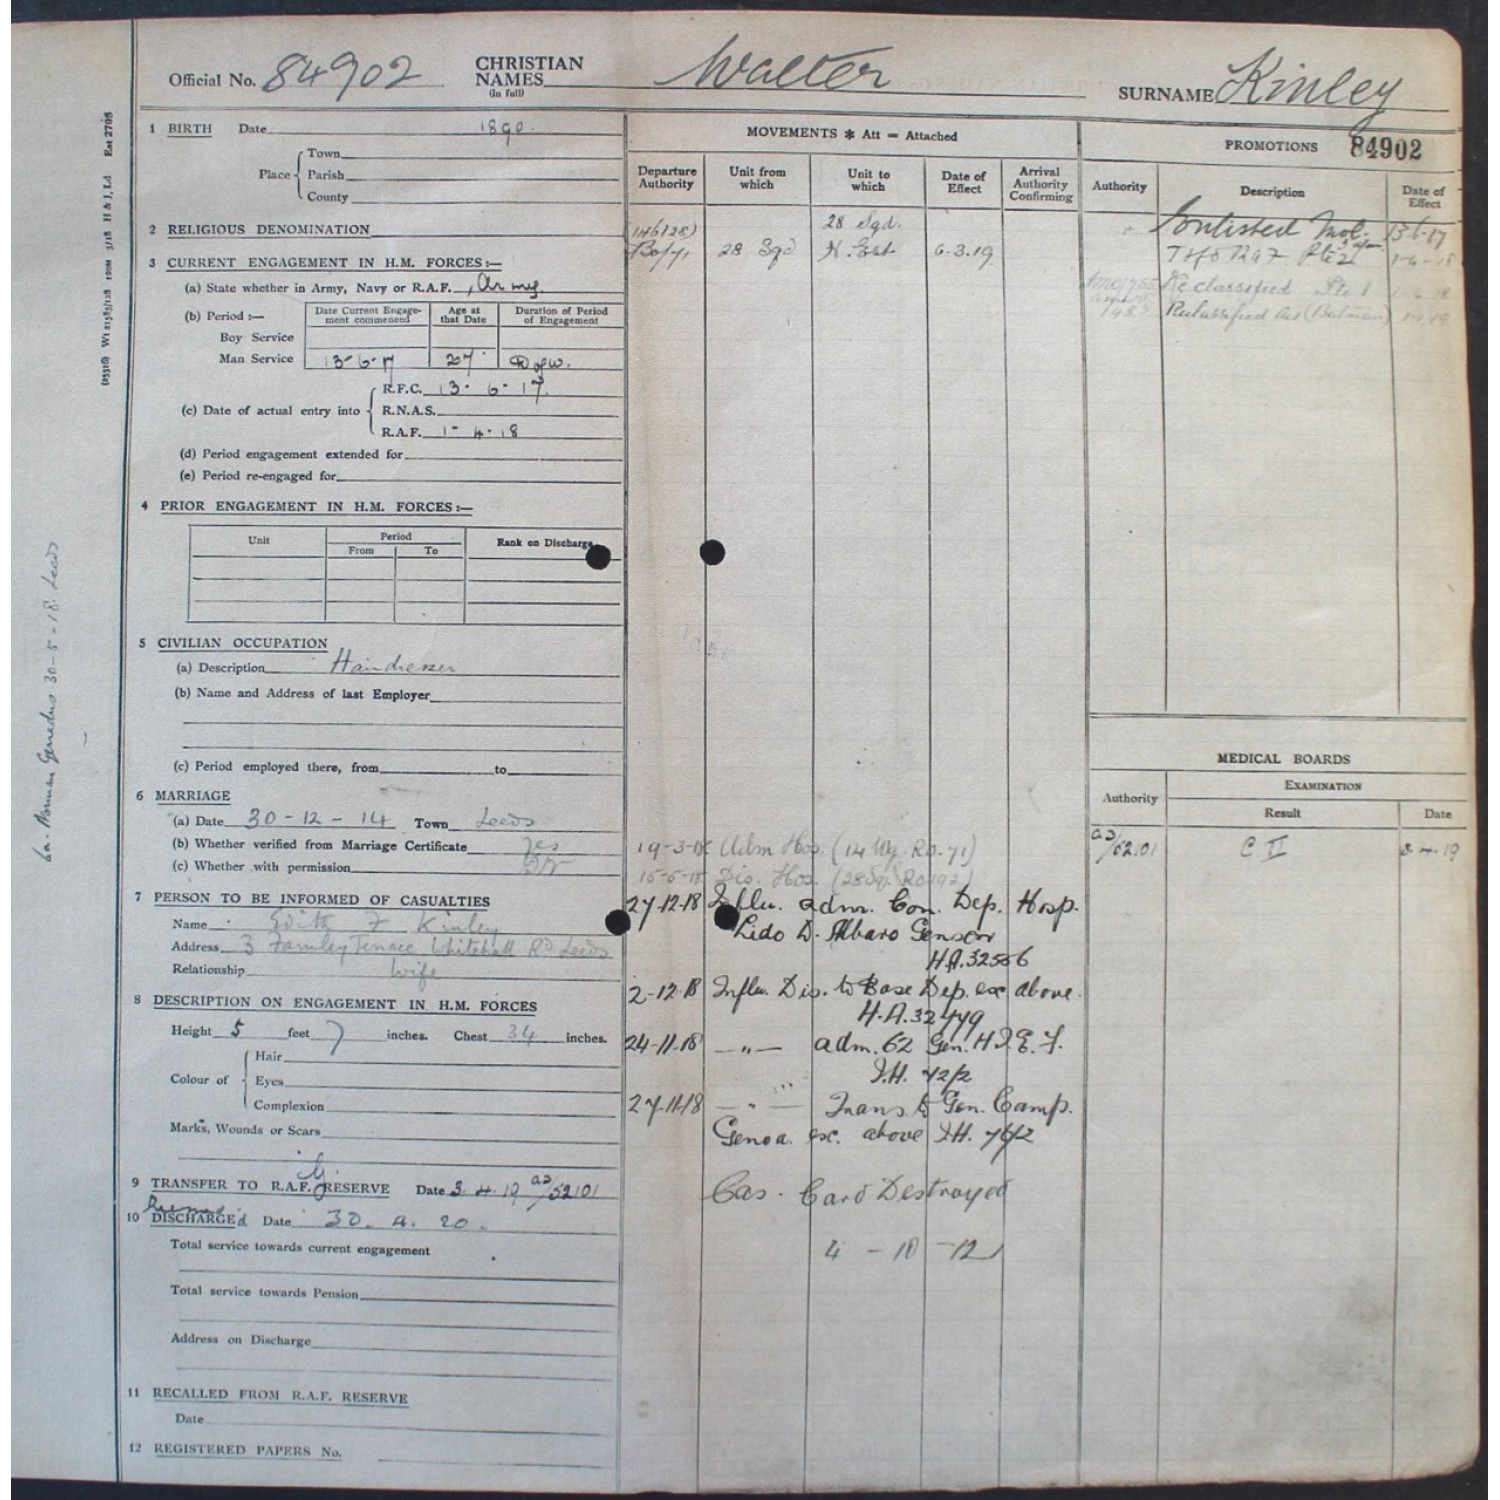 Official No. 84902 CHRISTIAN NAMES (In full) Walter SURNAME Kinley
1 BIRTH Date 1890.
Place Town
Parish
County
2 RELIGIOUS DENOMINATION
3 CURRENT ENGAGEMENT IN H.M. FORCES:—
(a) State whether in Army, Navy or R.A.F. Army
(b) Period :— Date Current Engagement commenced Age at that Date Duration of Period of Engagement
Boy Service
Man Service 13-6-17 27 D of W.
(c) Date of actual entry into R.F.C. 13. 6. 17.
R.N.A.S.
R.A.F. 1-4-18
(d) Period engagement extended for
(e) Period re-engaged for
4 PRIOR ENGAGEMENT IN H.M. FORCES:—
Unit Period Rank on Discharge
From To
5 CIVILIAN OCCUPATION
(a) Description Hairdresser
(b) Name and Address of last Employer
(c) Period employed there, from to
6 MARRIAGE
(a) Date 30-12-14 Town Leeds
(b) Whether verified from Marriage Certificate Yes
(c) Whether with permission
7 PERSON TO BE INFORMED OF CASUALTIES
Name Edith F Kinley
Address 3 Farnley Terrace Whitehall Rd Leeds
Relationship Wife
8 DESCRIPTION ON ENGAGEMENT IN H.M. FORCES
Height 5 feet 7 inches. Chest 34 inches.
Colour of Hair
Eyes
Complexion
Marks, Wounds or Scars
9 TRANSFER TO R.A.F. G RESERVE Date 3.4.19 /52101
10 DISCHARGE d Date 30. 4. 20.
Total service towards current engagement
Total service towards Pension
Address on Discharge
11 RECALLED FROM R.A.F. RESERVE
Date
12 REGISTERED PAPERS No.
MOVEMENTS * Att = Attached
Departure Authority Unit from which Unit to which Date of Effect Arrival Authority Confirming
28 Sqd.
28 Sqd 6.3.19
19-3-18 Adm Hos. (14 Wg. RO.71)
15-5-18 Dis. Hos. (28 Sq. RO.192)
27-12-18 Influ. adm. Con. Dep. Hosp.
Lido D. Albaro Genson
H.A.32556
2-12-18 Influ. Dis. to Base Dep. ex above.
H.A.32479
24-11-18 —"— adm. 62 Gen. H I.E.F.
I.H. 72/2
27-11-18 —"— Trans. to Gen. Camp.
Genoa. ex. above I.H. 76/2
Cas. Card Destroyed
4 - 10 - 12
PROMOTIONS 84902
Authority Description Date of Effect
Enlisted 13-6-17
Tsf to RAF Pte 2 1-4-18
Reclassified Pte 1
Reclassified (Batman) 1-1-19
MEDICAL BOARDS
Authority EXAMINATION
Result Date
/52101 C II 3.4.19
6a. Norman 30-5-18. Leeds